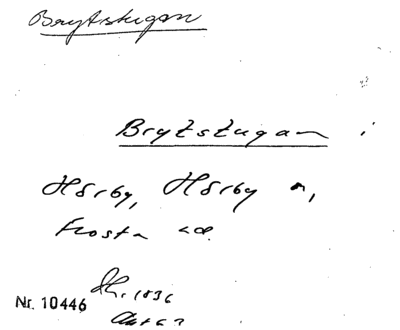 Brytstugan
Brytstugan i
Hörby, Hörby
Frosta
Nr. 10446
1836